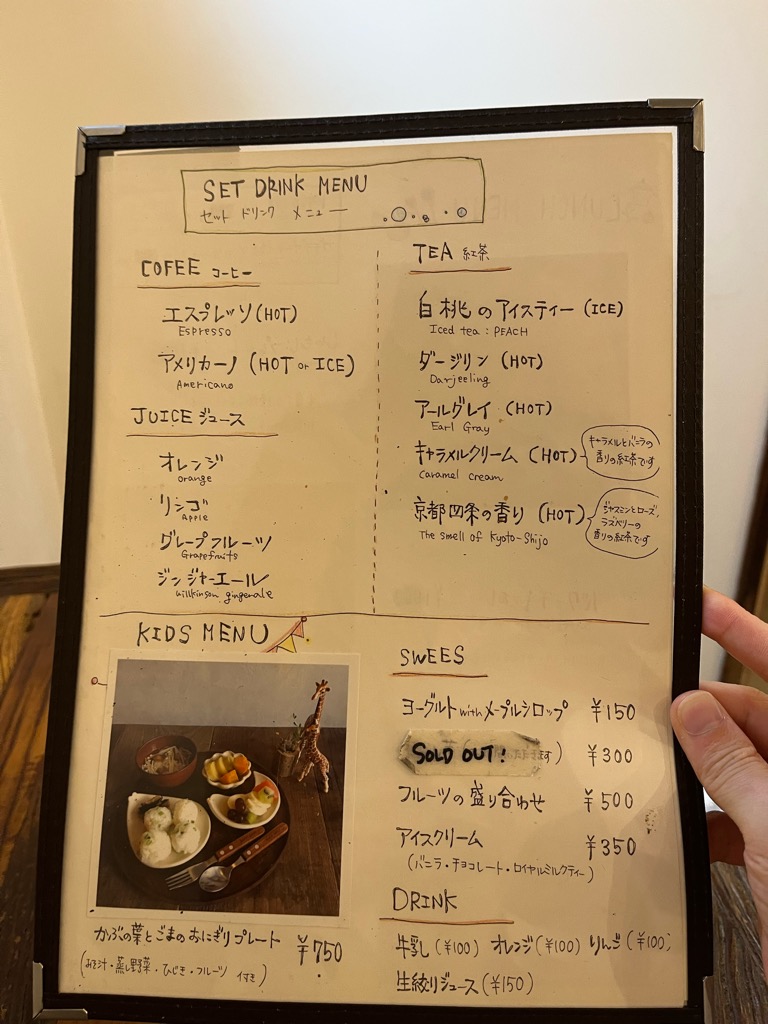 SET DRINK MENU
セット ドリンク メニュー
COFEE コーヒー
エスプレッソ (HOT)
Espresso
アメリカーノ (HOT or ICE)
Americano
JUICE ジュース
オレンジ
orange
リンゴ
Apple
グレープフルーツ
Grapefruits
ジンジャーエール
willkinson gingerale
TEA 紅茶
白桃のアイスティー (ICE)
Iced tea : PEACH
ダージリン (HOT)
Darjeeling
アールグレイ (HOT)
Earl Gray
キャラメルクリーム (HOT)
Caramel cream
キャラメルとバニラの
香りの紅茶です
京都四条の香り (HOT)
The smell of Kyoto-Shijo
ジャスミンとローズ,
ラズベリーの
香りの紅茶です
KIDS MENU
かぶの葉とごまのおにぎりプレート ¥750
(みそ汁・蒸し野菜・ひじき・フルーツ 付き)
SWEES
ヨーグルト with メープルシロップ ¥150
SOLD OUT! ます) ¥300
フルーツの盛り合わせ ¥500
アイスクリーム ¥350
(バニラ・チョコレート・ロイヤルミルクティー)
DRINK
牛乳 (¥100) オレンジ (¥100) りんご (¥100)
生絞りジュース (¥150)